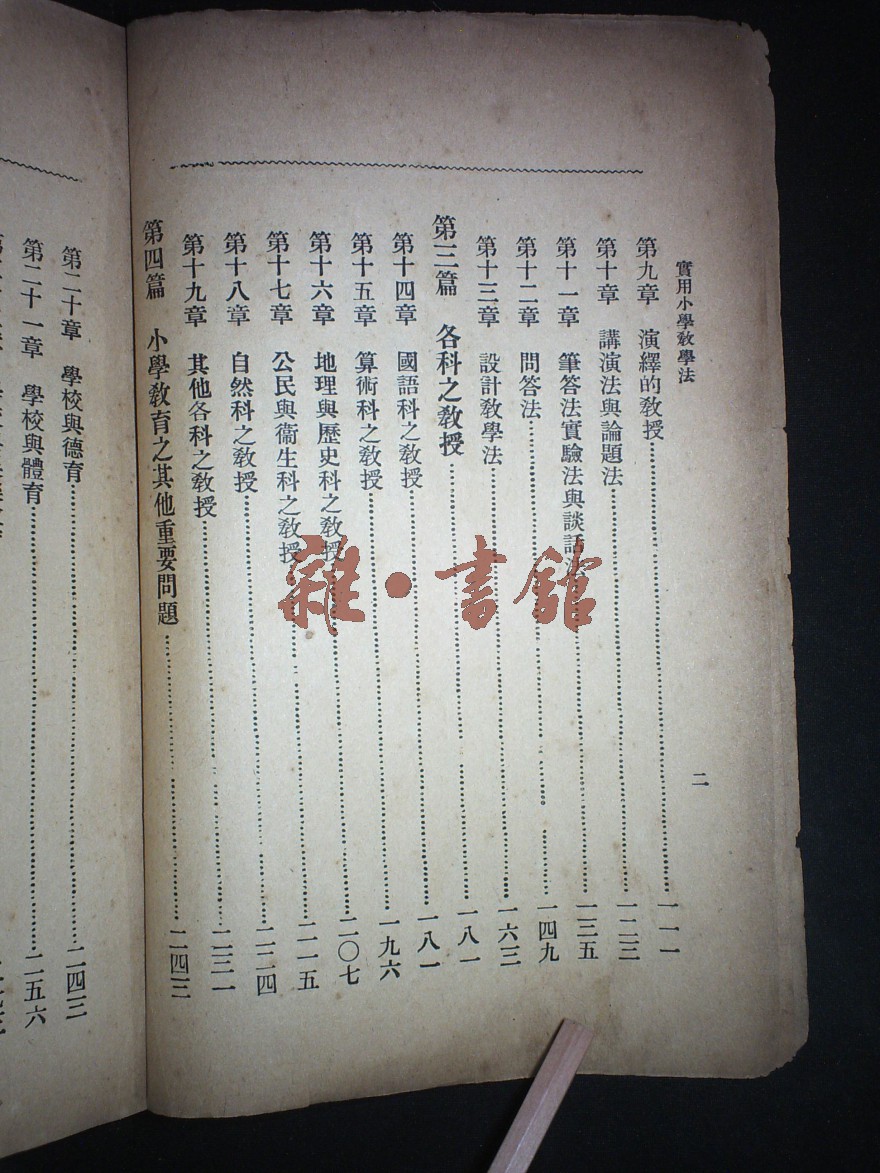 實用小學教學法
二
第九章 演繹的教授 一一一
第十章 講演法與論題法 一二三
第十一章 筆答法實驗法與談話法 一三五
第十二章 問答法 一四九
第十三章 設計教學法 一六三
第三篇 各科之教授 一八一
第十四章 國語科之教授 一八一
第十五章 算術科之教授 一九六
第十六章 地理與歷史科之教授 二〇七
第十七章 公民與衞生科之教授 二一五
第十八章 自然科之教授 二二四
第十九章 其他各科之教授 二三一
第四篇 小學教育之其他重要問題 二四三
第二十章 學校與德育 二四三
第二十一章 學校與體育 二五六
雜·書館